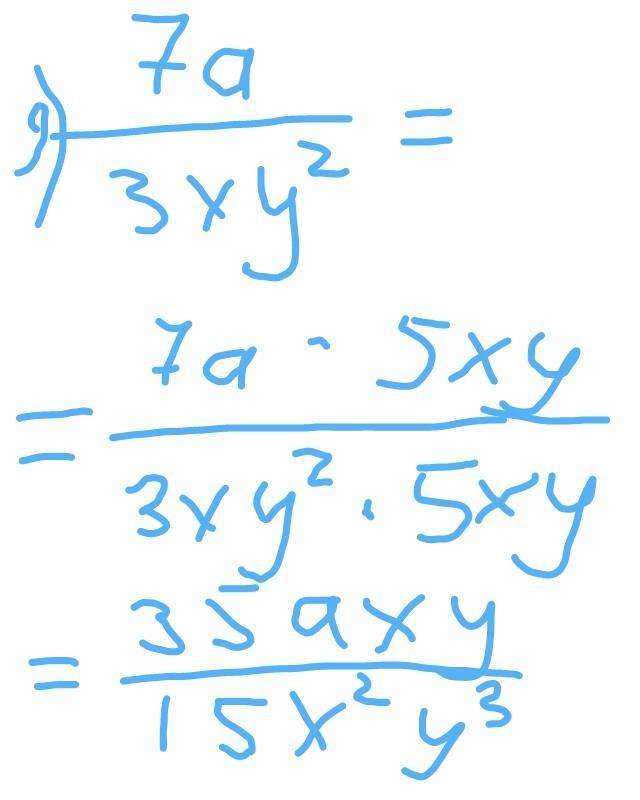 э) 7a / 3xy² =
= 7a · 5xy / 3xy² · 5xy
= 35axy / 15x²y³